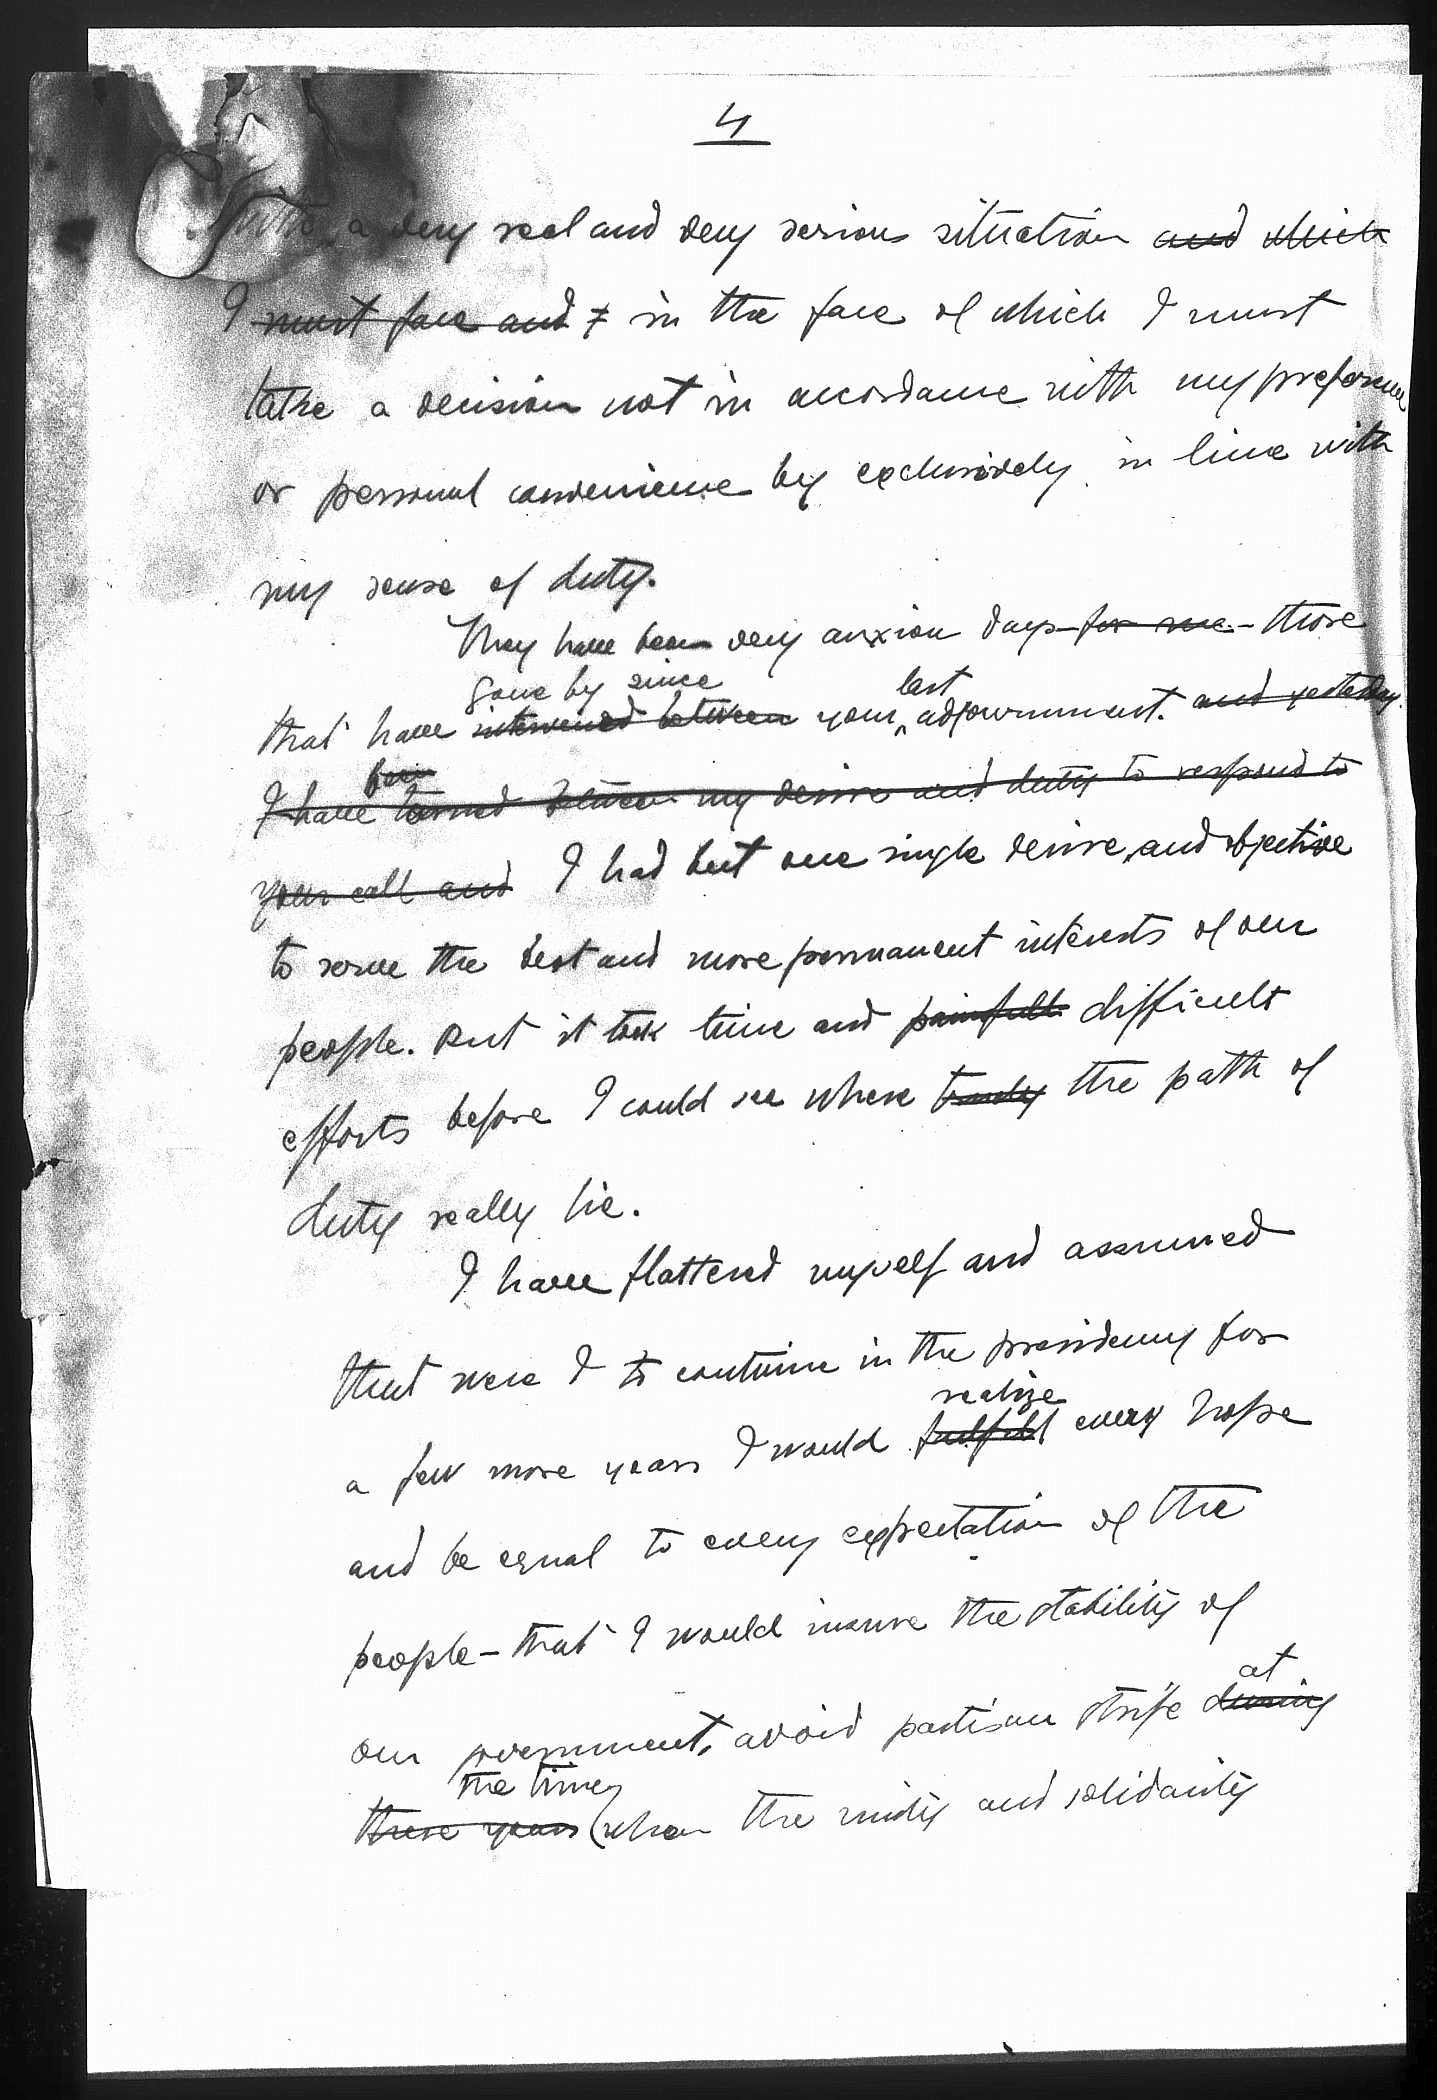 4
quite a very real and very serious situation and which
I must face and I in the face of which I must
take a decision not in accordance with my preference
or personal convenience by exclusively in line with
my sense of duty.
They have been very anxious days for me - those
gone by since last
that have intervened between your adjournment. and yesterday.
been
I have torned between my desire and duty to respond to
your call and I had but one single desire, and objective
to serve the best and more permanent interests of our
people. But it took time and painfull difficult
efforts before I could see where truely the path of
duty really lie.
I have flattered myself and assumed
that were I to continue in the presidency for
realize
a few more years I would fulfill every hope
and be equal to every expectation of the
people - that I would insure the stability of
at
our government, avoid partisan strife during
the time,
these years (when the unity and solidarity